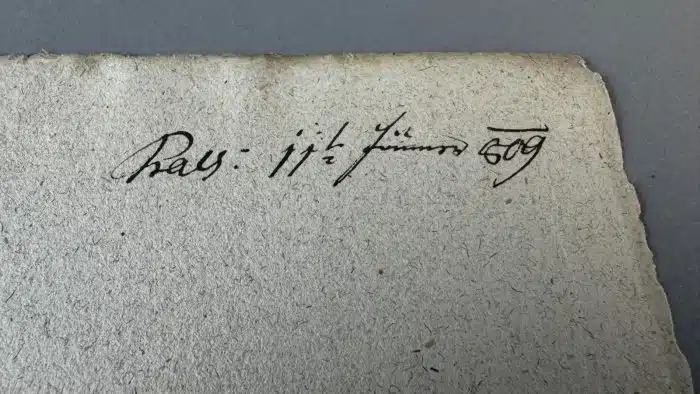 Praes: 11t Jänner 809